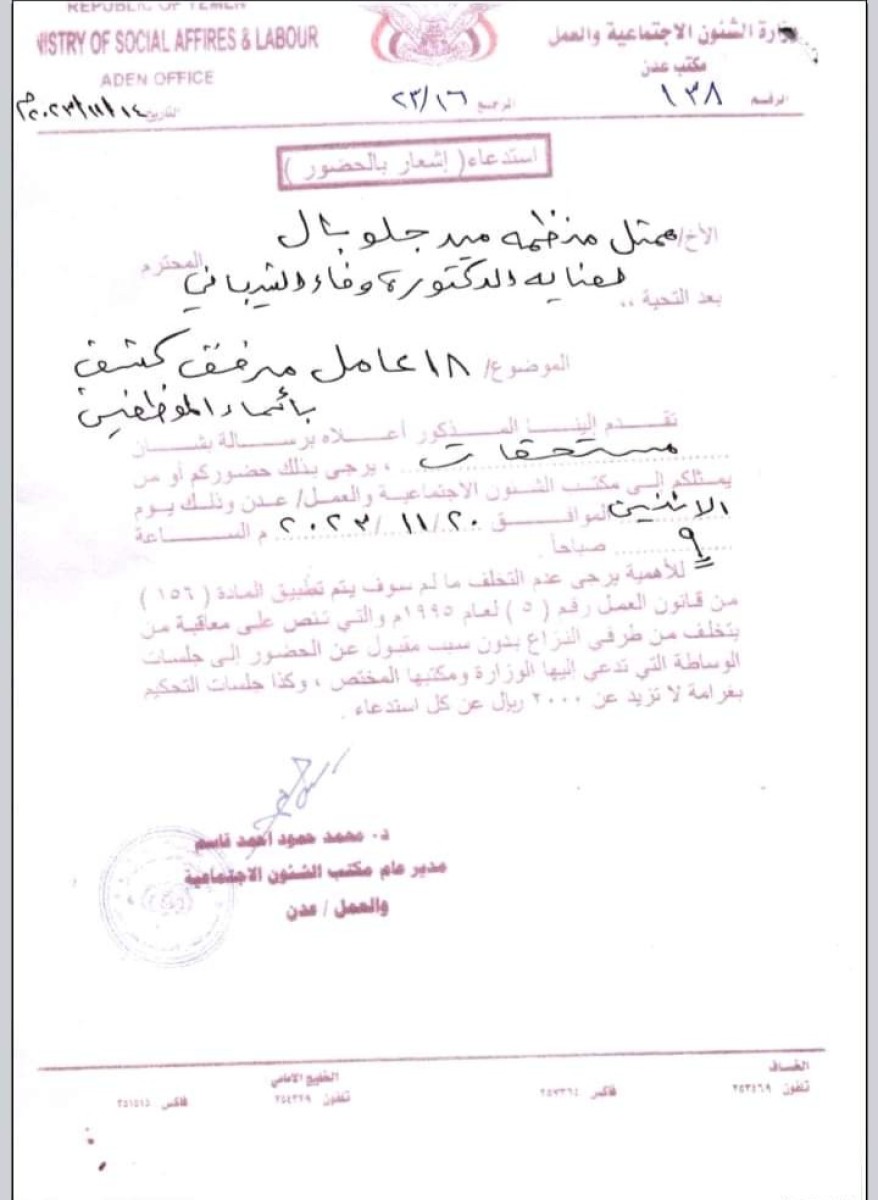 REPUBLIC OF YEMEN
NISTRY OF SOCIAL AFFIRES & LABOUR
ADEN OFFICE
وزارة الشئون الاجتماعية والعمل
مكتب عدن
الرقم ١٣٨
المرجع ٢٣/١٦
التاريخ ٢٠٢٣/١١/١٤م
استدعاء( إشعار بالحضور )
الأخ/ ممثل منظمه ميد جلوبال
لعنايه الدكتورة وفاء الشيباني المحترم
بعد التحية ..
الموضوع/ ١٨ عامل مرفق كشف
بأسماء الموظفين
تقدم إلينا المذكور أعلاه برسالة بشأن
مستحقات ، يرجى بذلك حضوركم أو من
يمثلكم إلى مكتب الشئون الاجتماعية والعمل/ عدن وذلك يوم
الاثنين الموافق ٢٠٢٣/١١/٢٠ م الساعة
٩ صباحاً .
للأهمية يرجى عدم التخلف ما لم سوف يتم تطبيق المادة ( ١٥٦ )
من قانون العمل رقم ( ٥ ) لعام ١٩٩٥م والتي تنص على معاقبة من
يتخلف من طرفي النزاع بدون سبب مقبول عن الحضور إلى جلسات
الوساطة التي تدعي إليها الوزارة ومكتبها المختص ، وكذا جلسات التحكيم
بغرامة لا تزيد عن ٢٠٠٠ ريال عن كل استدعاء .
د. محمد حمود احمد قاسم
مدير عام مكتب الشئون الاجتماعية
والعمل / عدن
الخساف
تلفون ٢٥٢٤٦٩
فاكس
الخليج الامامي
تلفون
فاكس ٢٥١٥١٥